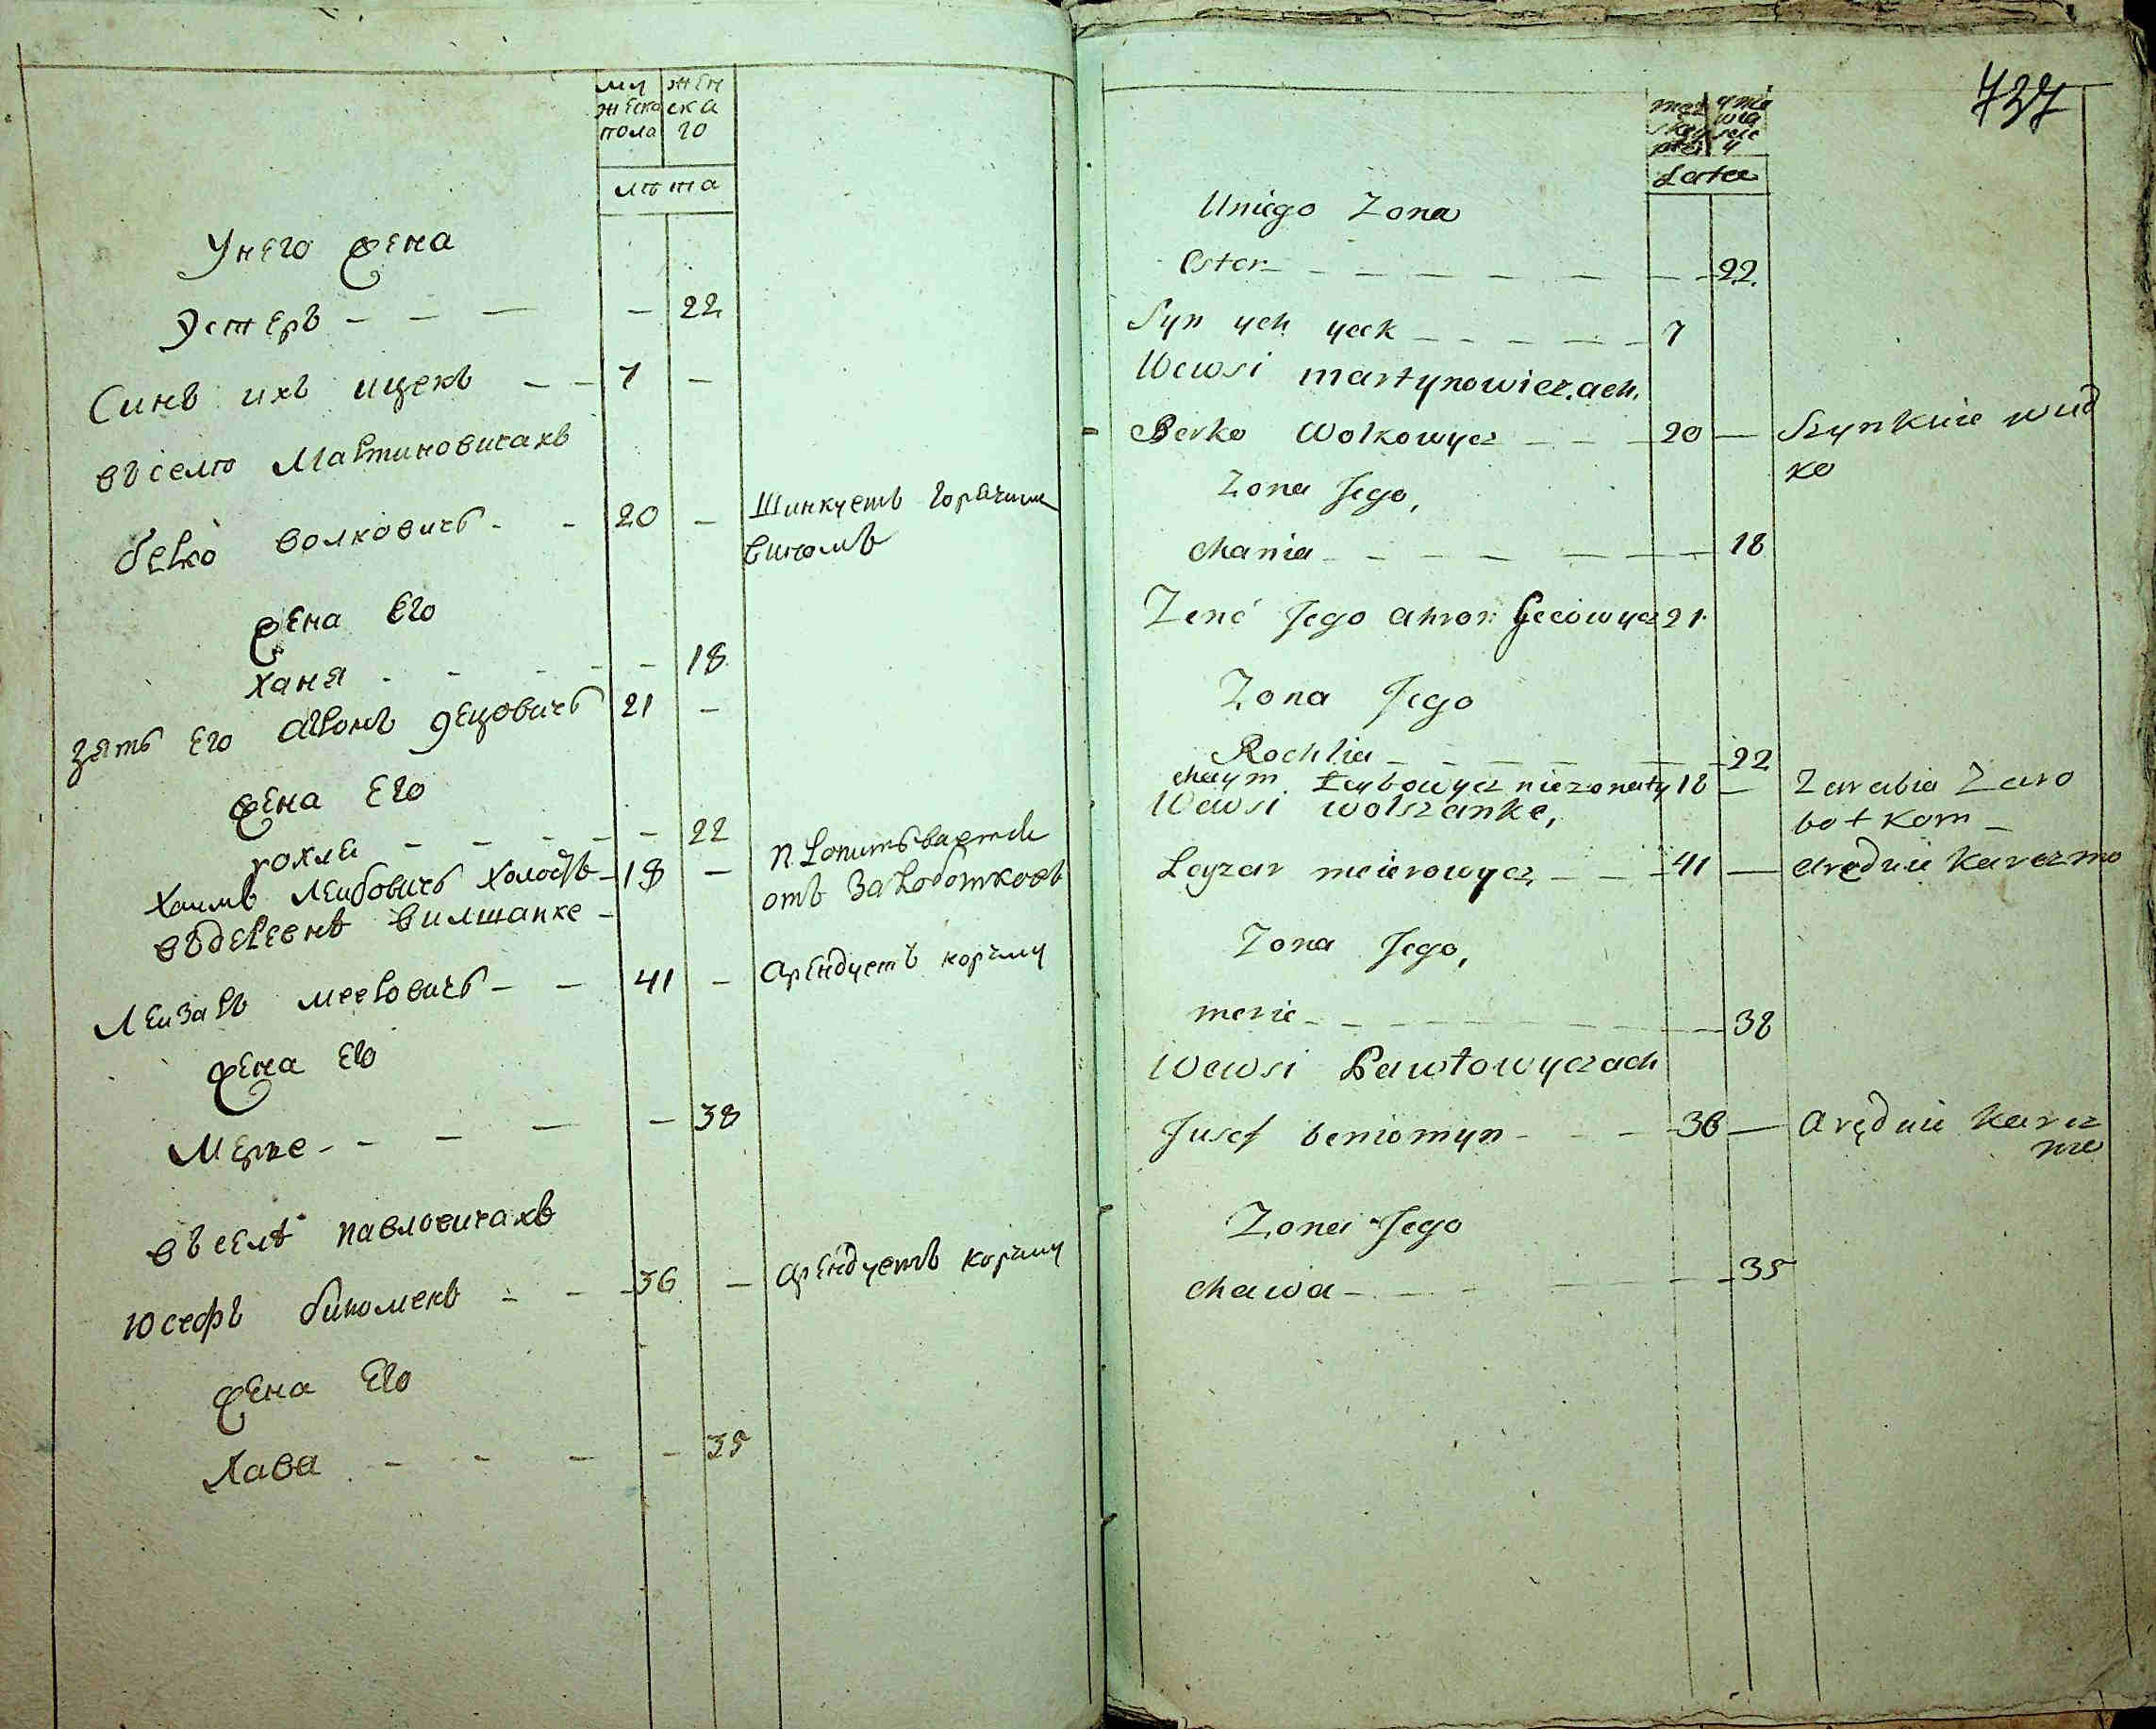 му жен
жеска ска
пола го
лѣта
Унего жена
Эстеръ - - - - 22
Синъ ихъ ицекъ - - 1 -
въ селѣ Мартиновичахъ
берко волковичъ - - 20 - Шинкуетъ горячим
виномъ
жена Его
ханя - - - - - 18
зять Его Аронъ гецовичъ 21 -
жена Его
рохля - - - - - 22
Хаимъ Леибовичъ холостъ - 18 -
отъ Заработковъ
въ деревнѣ вилшанке -
Леизаръ мееровичъ - - 41 - Арендуетъ корчму
жена Его
Мерке - - - - - 38
въ селѣ павловичахъ
Юсефъ биноменъ - - - 36 - арендуетъ корчму
жена Его
Хава - - - - 35
737
Latta
Uniego Zona
Ester - - - - - - - - 22
Syn ych ycek - - - - - 1
Wewsi martynowiczach.
Berko Wolkowycz - - - 20 - Szynkuie wud
ko
Zona Jego,
chania - - - - - - - 18
Zenć Jego ahron Gecowycz 21
Zona Jego
Rochlia - - - - - - 22
chaym Leybowycz niezonaty 18 - Zarabia Zaro
botkom -
Wewsi wolszanke,
Leyzar meierowycz - - - 41 - aręduie karczmo
Zona Jego,
merie - - - - - - - - 38
Wewsi Pawłowyczach
Jusef beniomyn - - - 36 - aręduie karcz
mo
Zona Jego
chawa - - - - - - - 35